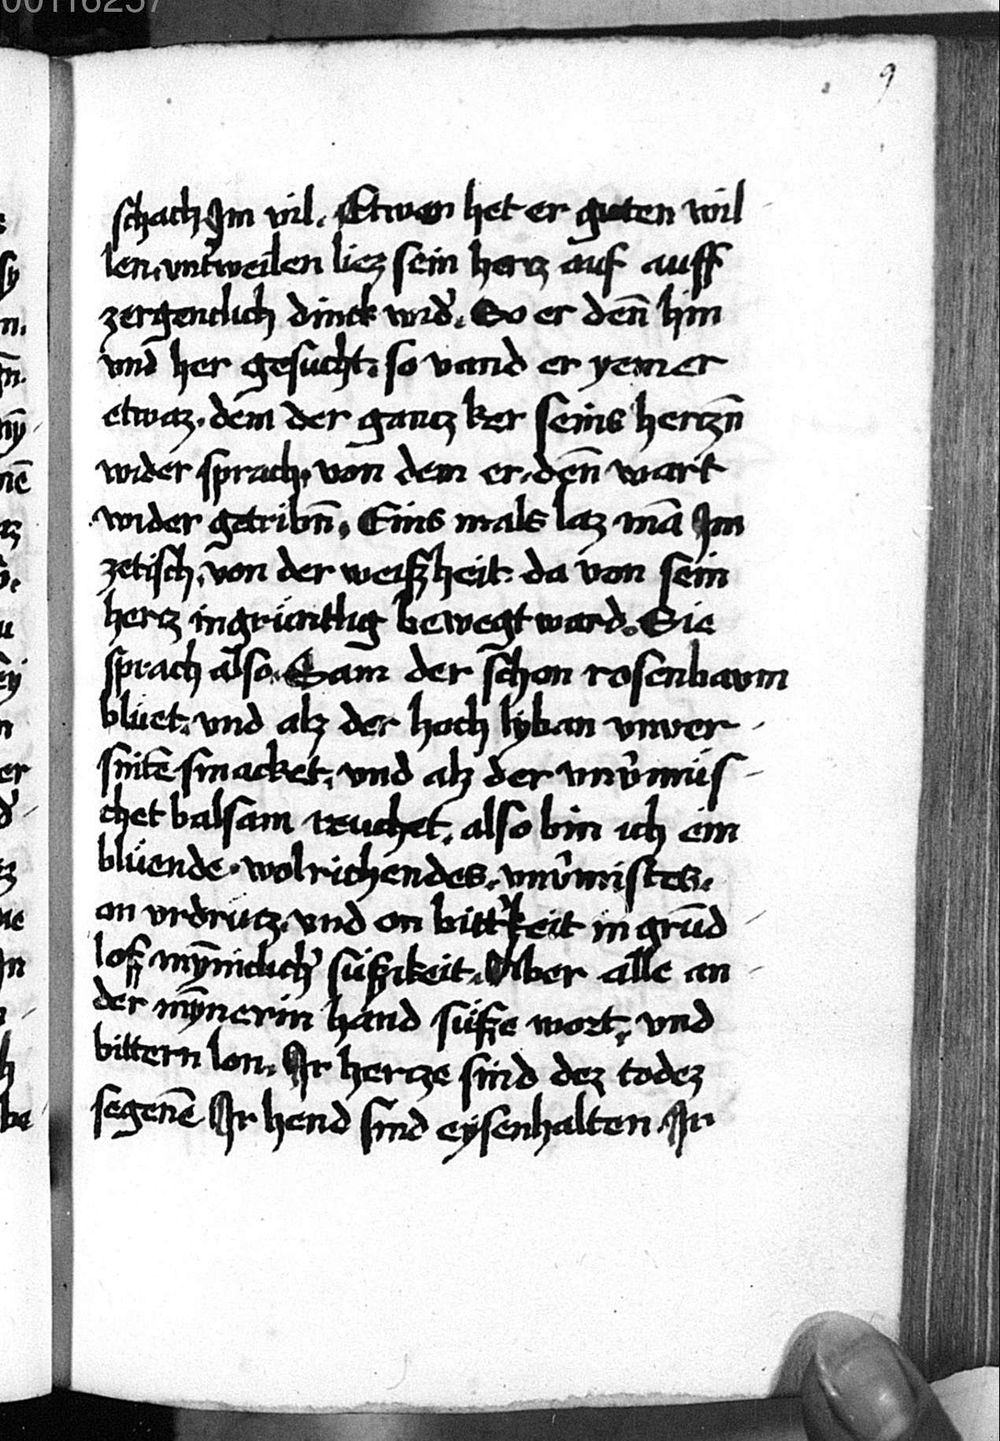 9
schach Im vil. Etwen het er guten wil
len. vnt̉weilen liez sein hercz auf auff
zergenclich dinck wid̉. So er den̄ hin
vnd her gesucht. so vand er yemer
etwaz. dem der gancz ker seins herczn̄
wider sprach. von dem er. den̄ wart
wider getribn̄. Eins mals laz mā Im
zetisch. von der weiszheit. da von sein
hercz ingrüntlig bewegt ward. Sie
sprach also. Sam der schon rosenbaum
blüet. vnd alz der hoch lyban vnver
snitē smacket. vnd alz der vnv̉müs
chet balsam reuchet. also bin ich ein
blüende. wolrichendes. vnv̉mistes.
on vrdrucz. vnd on bitt̉keit in grūd
loss mȳniclich̉ süssikeit. Aber alle an
der mȳnerin hand süsse wort. vnd
bittern lon. Ir hercze sind dez todez
segenē Ir hend sind eysenhalten. Ir